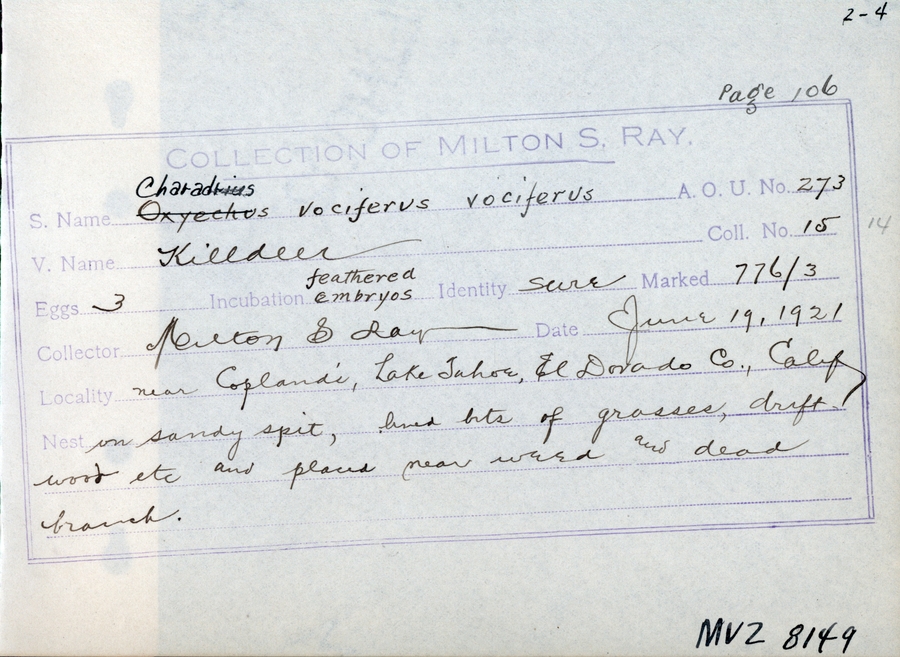 2-4
Page 106
COLLECTION OF MILTON S. RAY.
Charadrius
S. Name Oxyechus vociferus vociferus A. O. U. No. 273
V. Name Killdeer Coll. No. 15 14
feathered
Eggs 3 Incubation embryos Identity sure Marked 776/3
Collector Milton S Ray Date June 19, 1921
Locality near Copland's, Lake Tahoe, El Dorado Co., Calif
Nest on sandy spit, lined bits of grasses, drift-
wood etc and placed near weed and dead
branch.
MVZ 8149